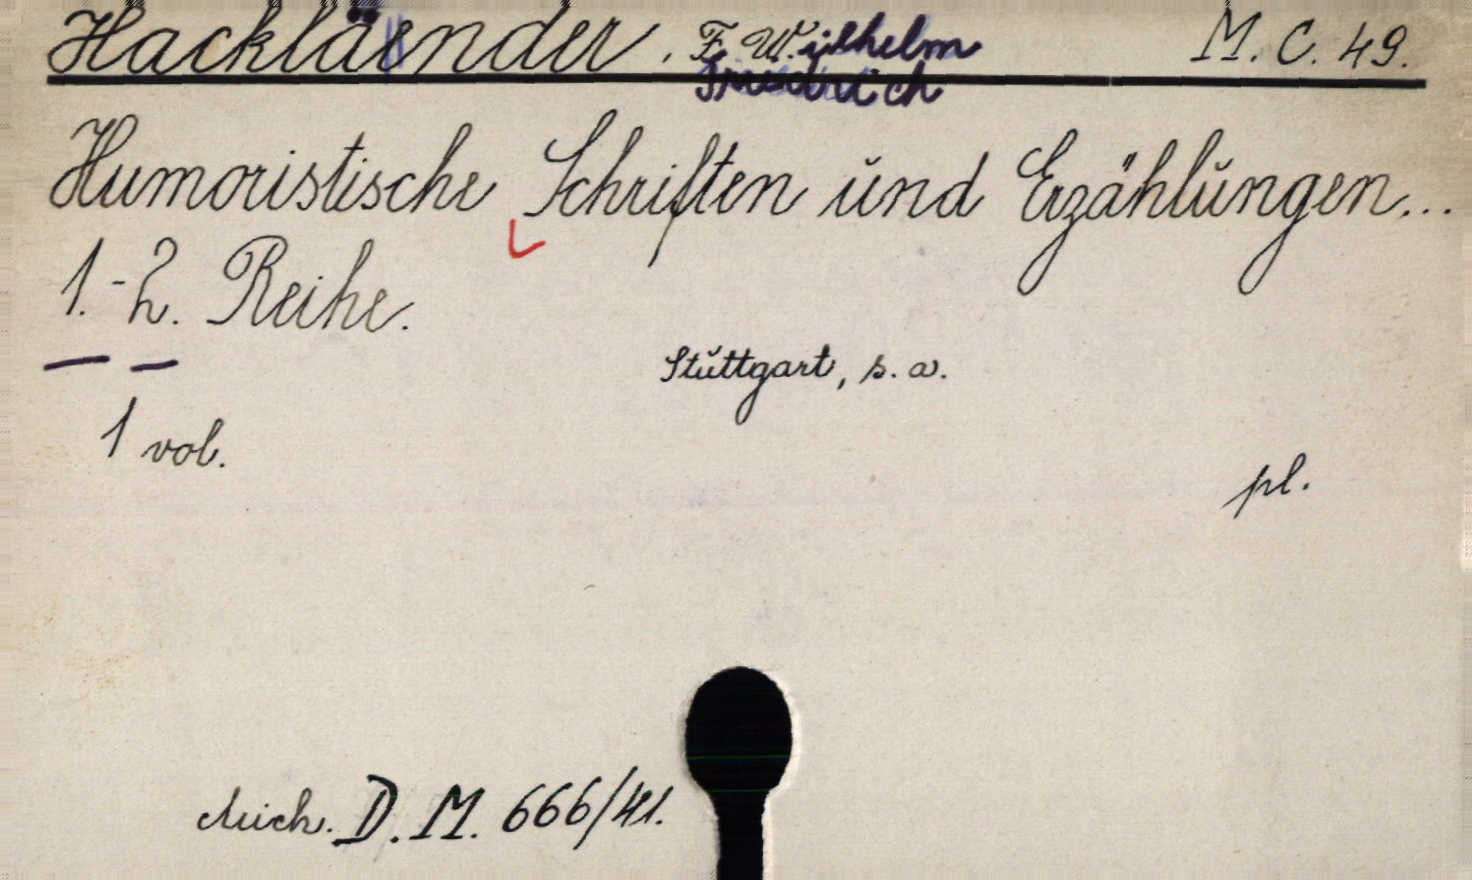 Hackländer, F. Wilhelm M. C. 49.
Friedrich
Humoristische Schriften und Erzählungen...
1.-2. Reihe.
Stuttgart, s. a.
1 vol.
pl.
D. M. 666/41.